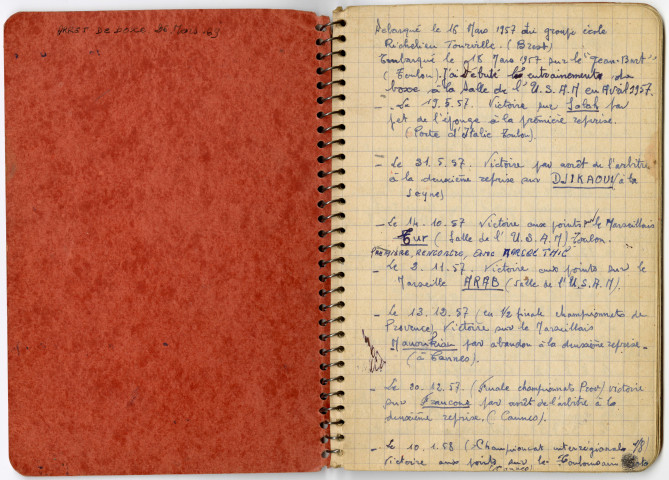 ARRET DE BOXE 26 Mars 63
Débarqué le 16 Mars 1957 du groupe école
Richelieu Tourville. (Brest)
Embarqué le 18 Mars 1957 sur le "Jean-Bart"
(Toulon). J'ai débuté les entrainements de
boxe à la salle de l'U.S.A.M en Avril 1957.
- Le 19.5.57. Victoire sur Salah par
jet de l'éponge à la première reprise.
(Porte d'Italie Toulon).
- Le 31.5.57. Victoire par arrêt de l'arbitre
à la deuxième reprise sur DJIKAOUI à la
Seyne)
- Le 14.10.57 Victoire aux points sur le Marseillais
Tur (Salle de l'U.S.A.M) Toulon.
PREMIERE RENCONTRE, avec
- Le 2.11.57. Victoire aux points sur le
Marseille ARAB (Salle de l'U.S.A.M).
- Le 13.12.57 (en 1/2 finale championnats de
Provence) Victoire sur le Marseillais
Manoukian par abandon à la deuxième reprise.-
(à Cannes).
- Le 20.12.57. (Finale championnats Prov) victoire
sur Francone par arrêt de l'arbitre à la
deuxième reprise. (Cannes).
- Le 10.1.58 (Championnat interrégionale 1/8)
Victoire aux points sur le Toulousain